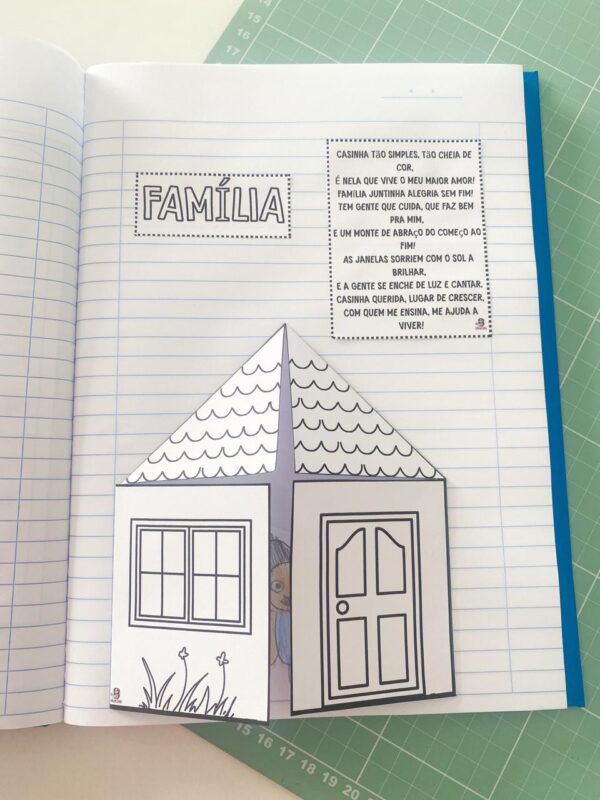 14
15
16
17
FAMÍLIA
CASINHA TÃO SIMPLES, TÃO CHEIA DE
COR,
É NELA QUE VIVE O MEU MAIOR AMOR!
FAMÍLIA JUNTINHA ALEGRIA SEM FIM!
TEM GENTE QUE CUIDA, QUE FAZ BEM
PRA MIM,
E UM MONTE DE ABRAÇO DO COMEÇO AO
FIM!
AS JANELAS SORRIEM COM O SOL A
BRILHAR,
E A GENTE SE ENCHE DE LUZ E CANTAR.
CASINHA QUERIDA, LUGAR DE CRESCER,
COM QUEM ME ENSINA, ME AJUDA A
VIVER!
15 16 17 18 19 20